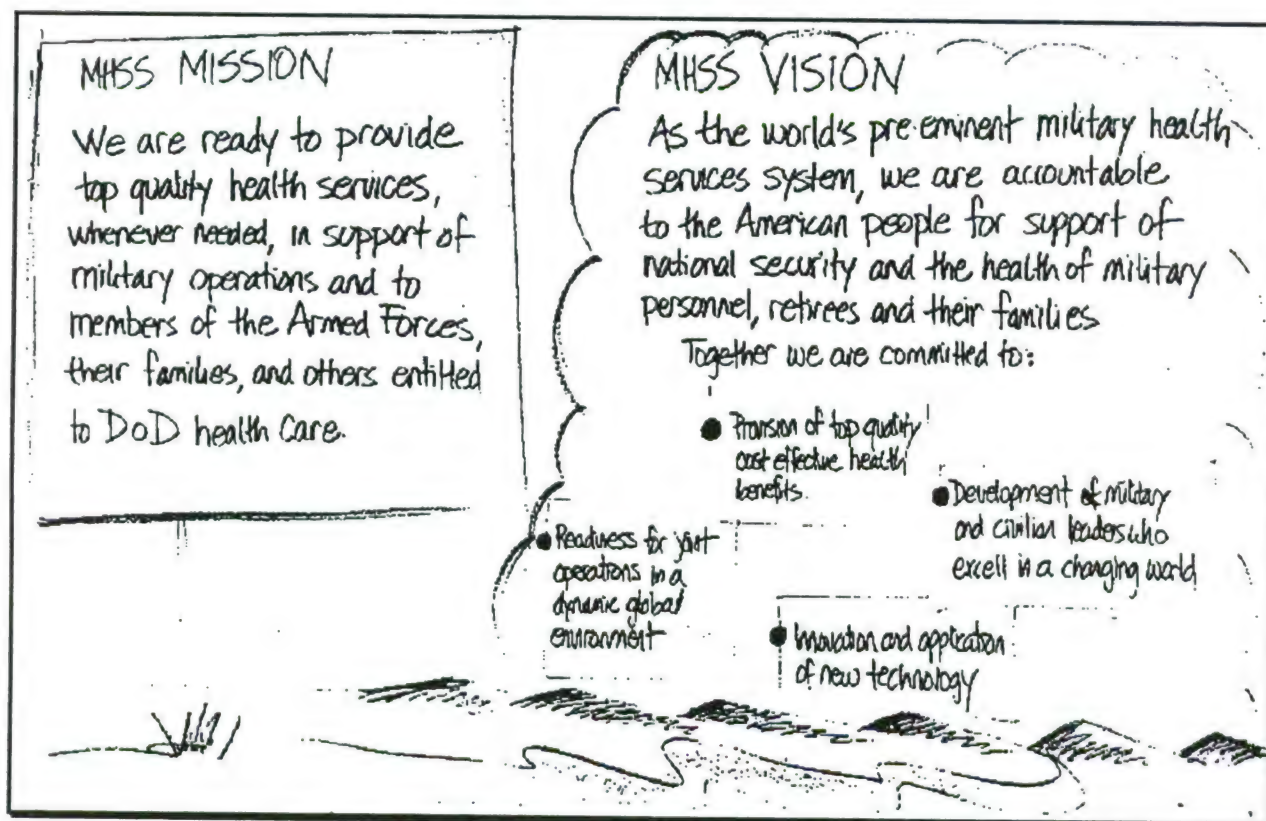 MHSS MISSION
We are ready to provide
top quality health services,
whenever needed, in support of
military operations and to
members of the Armed Forces,
their families, and others entitled
to DoD health Care.
MHSS VISION
As the world's pre-eminent military health
services system, we are accountable
to the American people for support of
national security and the health of military
personnel, retirees and their families
Together we are committed to:
● Provision of top quality
cost effective health
benefits.
● Development of military
and civilian leaders who
excell in a changing world
● Readiness for joint
operations in a
dynamic global
environment
● Innovation and application
of new technology